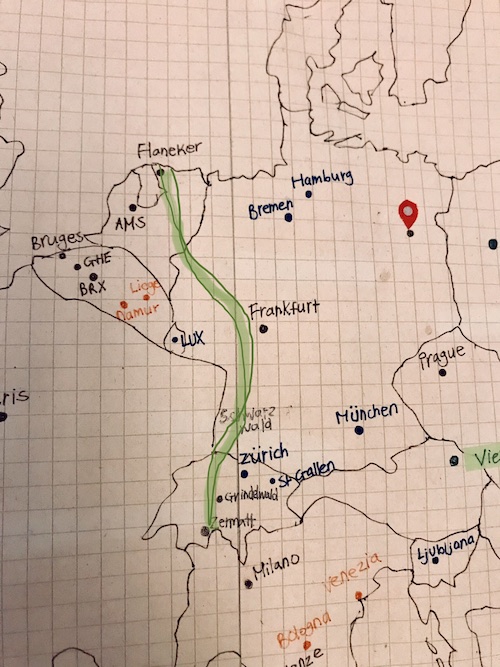 Flaneker
Hamburg
Bremen
AMS
Bruges
GHE
BRX
Liege
Namur
Frankfurt
LUX
Prague
ris
Schwarz
wald
München
Zürich
St Gallen
Vie
Grindelwald
Zermatt
Ljubljana
Milano
Venezia
Bologna